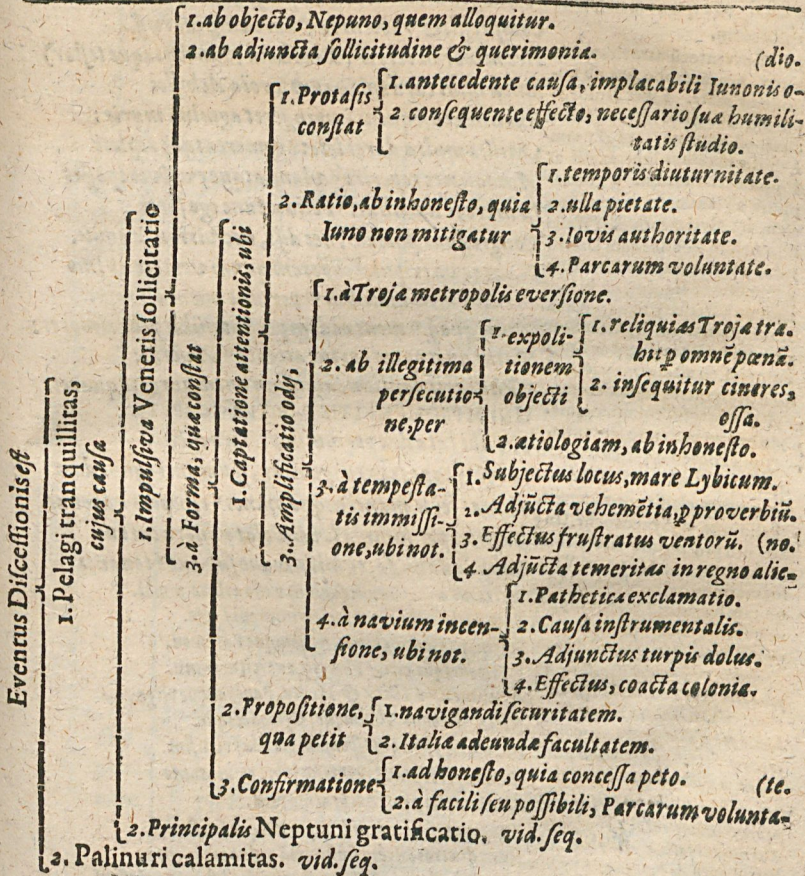 Eventus Discessionis est
1. Pelagi tranquillitas,
cujus causa
1. Impulsiva Veneris sollicitatio
1. ab objecto, Nepuno, quem alloquitur.
2. ab adjuncta sollicitudine & querimonia.
3. à Forma, qua constat
1. Captatione attentionis, ubi
1. Protasis
constat
1. antecedente causa, implacabili Iunonis o-
(dio.
2. consequente effecto, necessario suæ humili-
tatis studio.
2. Ratio, ab inhonesto, quia
Iuno non mitigatur
1. temporis diuturnitate.
2. ulla pietate.
3. Iovis authoritate.
4. Parcarum voluntate.
3. Amplificatio odij,
1. à Trojæ metropolis eversione.
2. ab illegitima
persecutio-
ne, per
1. expoli-
tionem
objecti
1. reliquias Trojæ tra.
hit ꝑ omnē pœnā.
2. insequitur cineres,
ossa.
2. ætiologiam, ab inhonesto.
3. à tempesta-
tis immissi-
one, ubi not.
1. Subjectus locus, mare Lybicum.
2. Adjūcta vehemētia, ꝑ proverbiū.
3. Effectus frustratus ventorū. (no.
4. Adjūcta temeritas in regno alie-
4. à navium incen-
sione, ubi not.
1. Pathetica exclamatio.
2. Causa instrumentalis.
3. Adjunctus turpis dolus.
4. Effectus, coacta colonia.
2. Propositione,
qua petit
1. navigandi securitatem.
2. Italiæ adeundæ facultatem.
3. Confirmatione
1. ad honesto, quia concessa peto.
(te.
2. à facili seu possibili, Parcarum volunta-
2. Principalis Neptuni gratificatio. vid. seq.
2. Palinuri calamitas. vid. seq.